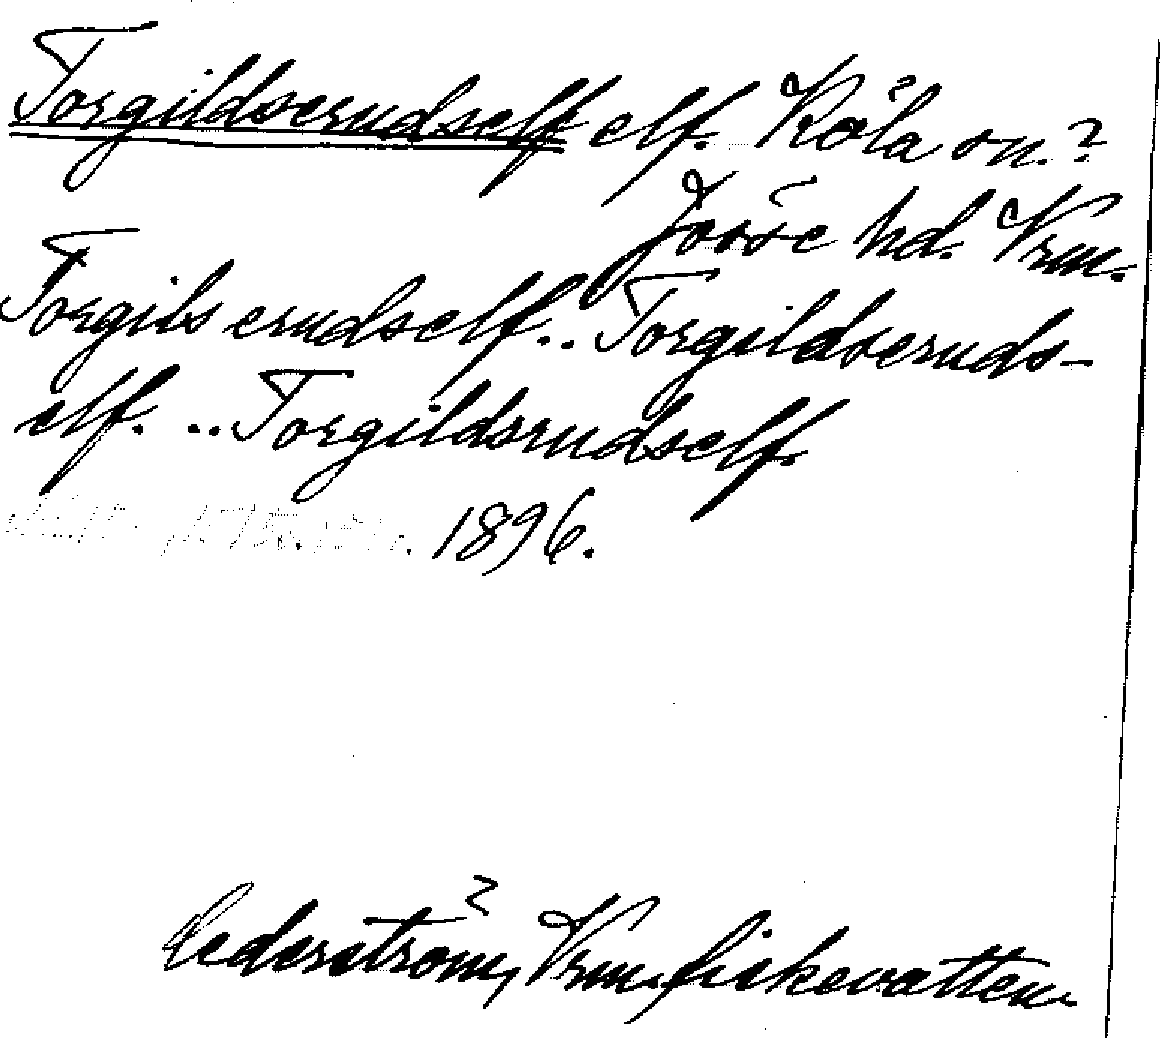 Torgildserudself elf. Köla sn.?
Jösse hd. Vrm.
Torgilserudself... Torgildseruds-
elf. ... Torgildsrudself.
1896.
Cederström, Vrm. fiskevatten